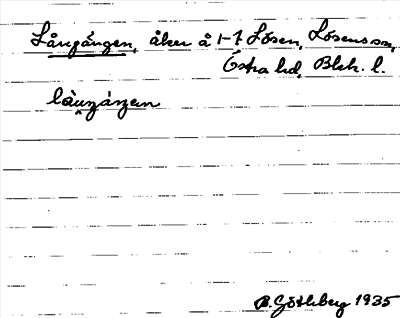 Långången, åker å 1-7 Lösen, Lösens sn,
Östra hd, Blek. l.
làŋgáŋen
B. Göthberg 1935